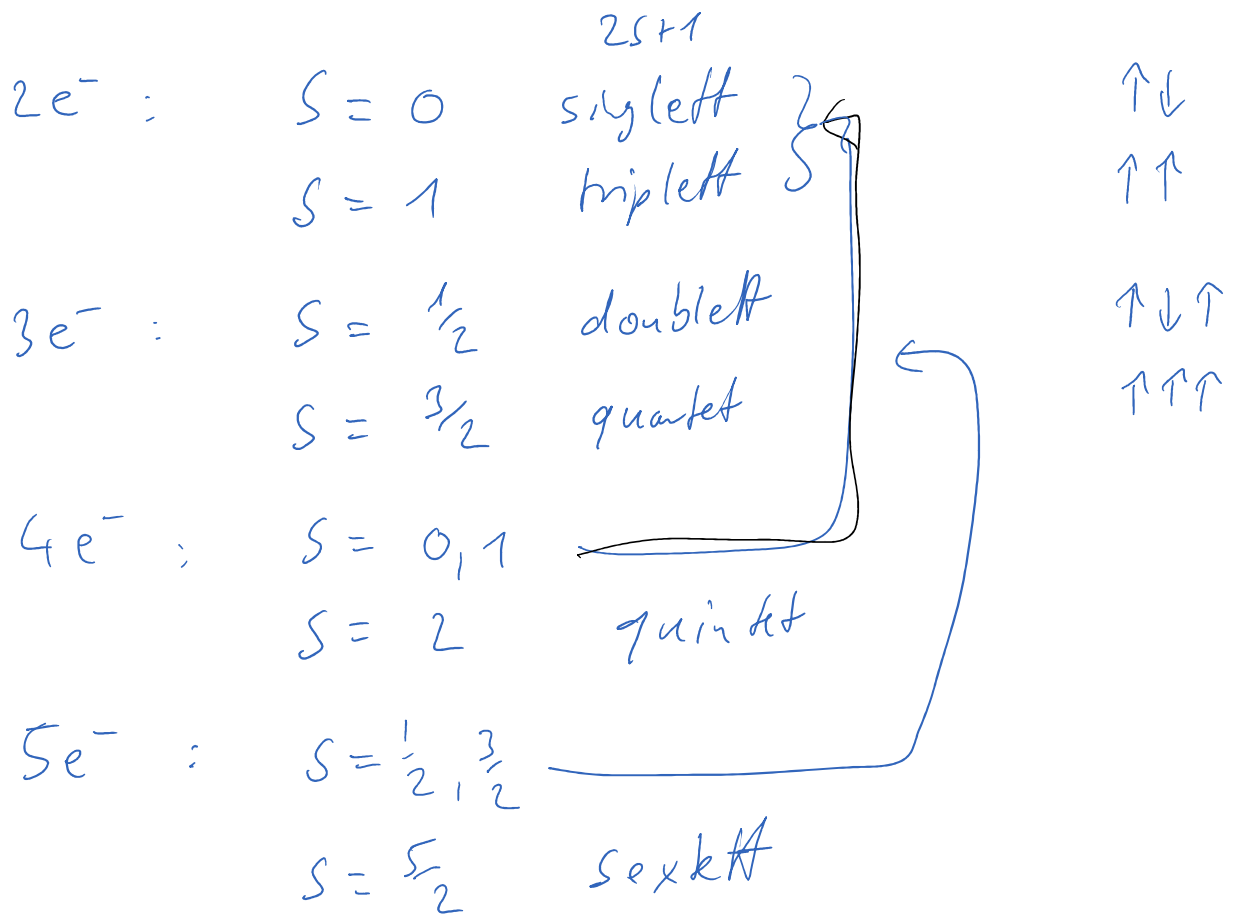 2S+1
2e⁻ : S = 0 singlett ↑↓
S = 1 triplett ↑↑
3e⁻ : S = 1/2 doublett ↑↓↑
S = 3/2 quartet ↑↑↑
4e⁻ : S = 0,1
S = 2 quintet
5e⁻ : S = 1/2, 3/2
S = 5/2 sextett